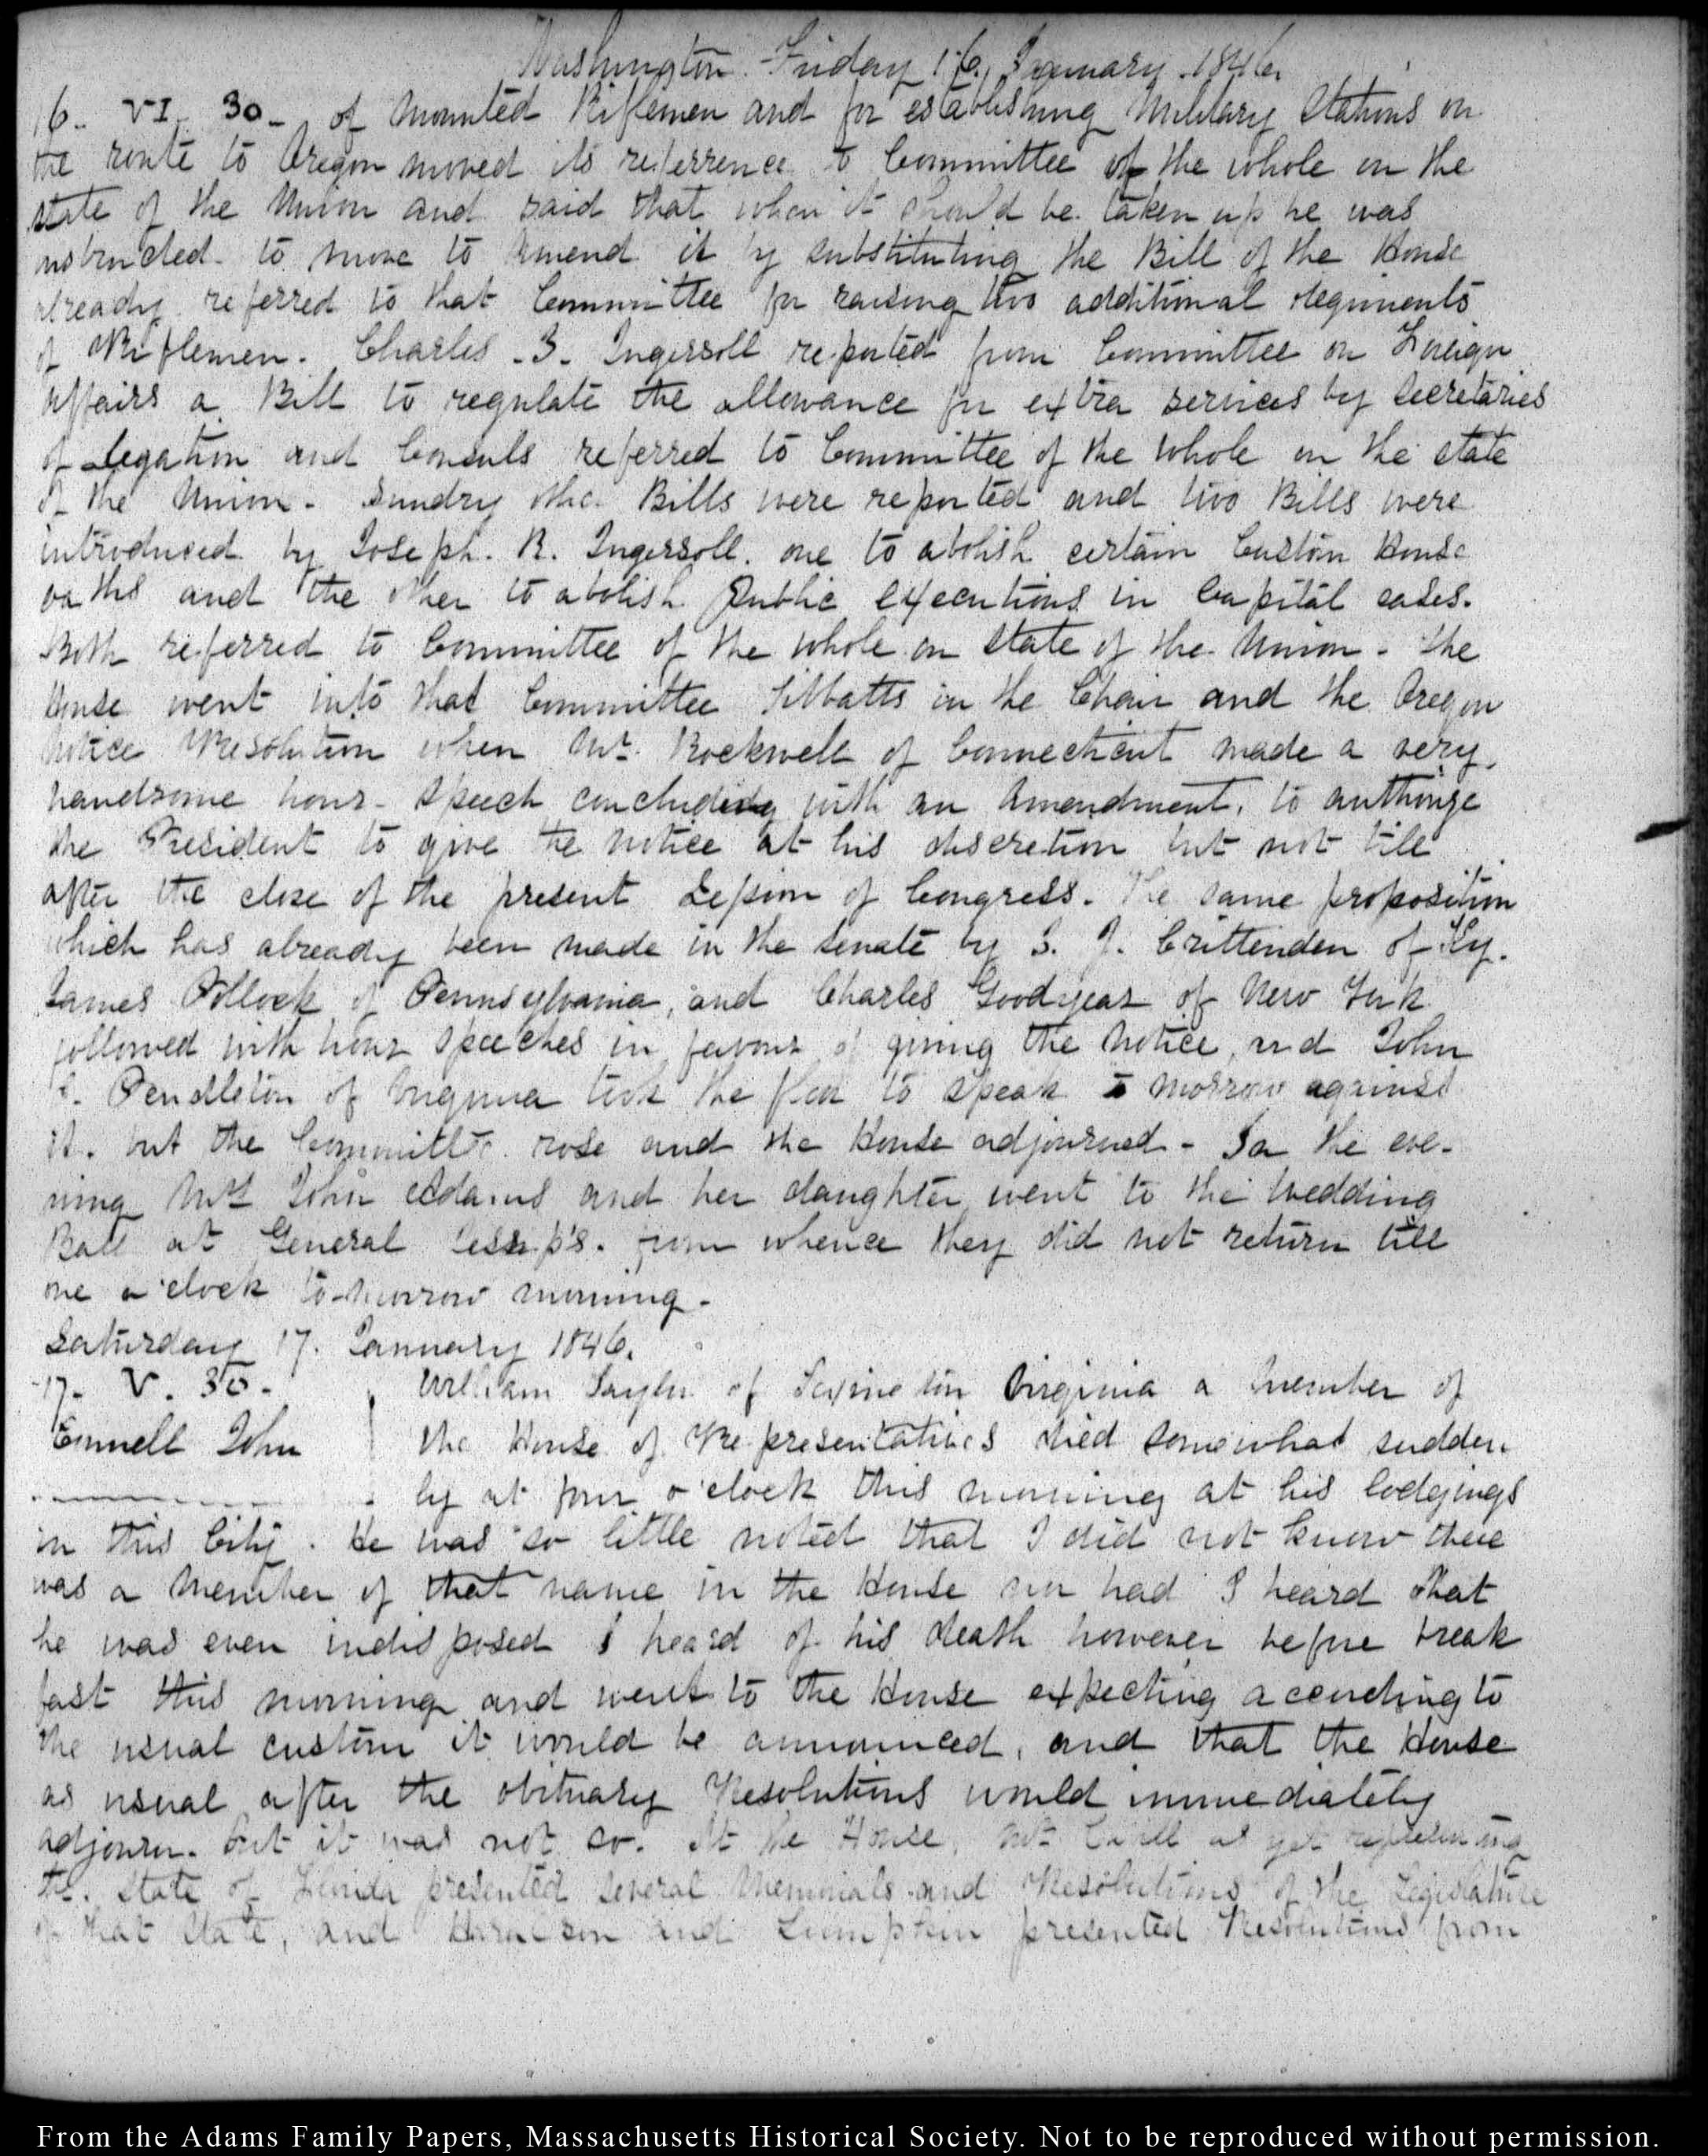 Washington Friday 16. January 1846.
16. VI. 30. of Mounted Riflemen and for establishing Military Stations on
the route to Oregon moved its referrence to Committee of the whole on the
state of the Union and said that when it should be taken up he was
instructed to move to amend it by substituting the Bill of the House
already referred to that Committee for raising two additional Regiments
of Riflemen. Charles J. Ingersoll reported from Committee on Foreign
Affairs a Bill to regulate the allowance for extra services by Secretaries
of Legation and Consuls referred to Committee of the Whole on the state
of the Union. Sundry other Bills were reported and two Bills were
introduced by Joseph R. Ingersoll. one to abolish certain Custom House
oaths and the other to abolish Public Executions in Capital cases.
Both referred to Committee of the whole on state of the Union. The
House went into that Committee Tibbatts in the Chair and the Oregon
notice Resolution when Mr. Rockwell of Connecticut made a very
handsome hour speech concluding with an Amendment, to authorize
the President to give the notice at his discretion but not till
after the close of the present Session of Congress. The same proposition
which has already been made in the Senate by J. J. Crittenden of Ky.
James Pollock of Pennsylvania, and Charles Goodyear of New York
followed with hour speeches in favour of giving the notice, and John
S. Pendleton of Virginia took the floor to speak to morrow against
it. but the Committee rose and the House adjourned - In the eve-
ning Mrs John Adams and her daughter went to the Wedding
Ball at General Jessup's. from whence they did not return till
one o'clock to-morrow morning.
Saturday 17. January 1846.
17. V. 30. William Taylor of Lexington Virginia a member of
Emmell John the House of Representatives died somewhat sudden
ly at four o'clock this morning at his lodgings
in this City. He was so little noted that I did not know there
was a Member of that name in the House nor had I heard that
he was even indisposed I heard of his death however before break
fast this morning and went to the House expecting according to
the usual custom it would be announced, and that the House
as usual after the obituary Resolutions would immediately
adjourn. but it was not so. At the House, Mr as yet representing
the State of Florida presented several Memorials and Resolutions of the Legislature
of that State, and Haralson and Lumpkin presented Resolutions from
From the Adams Family Papers, Massachusetts Historical Society. Not to be reproduced without permission.